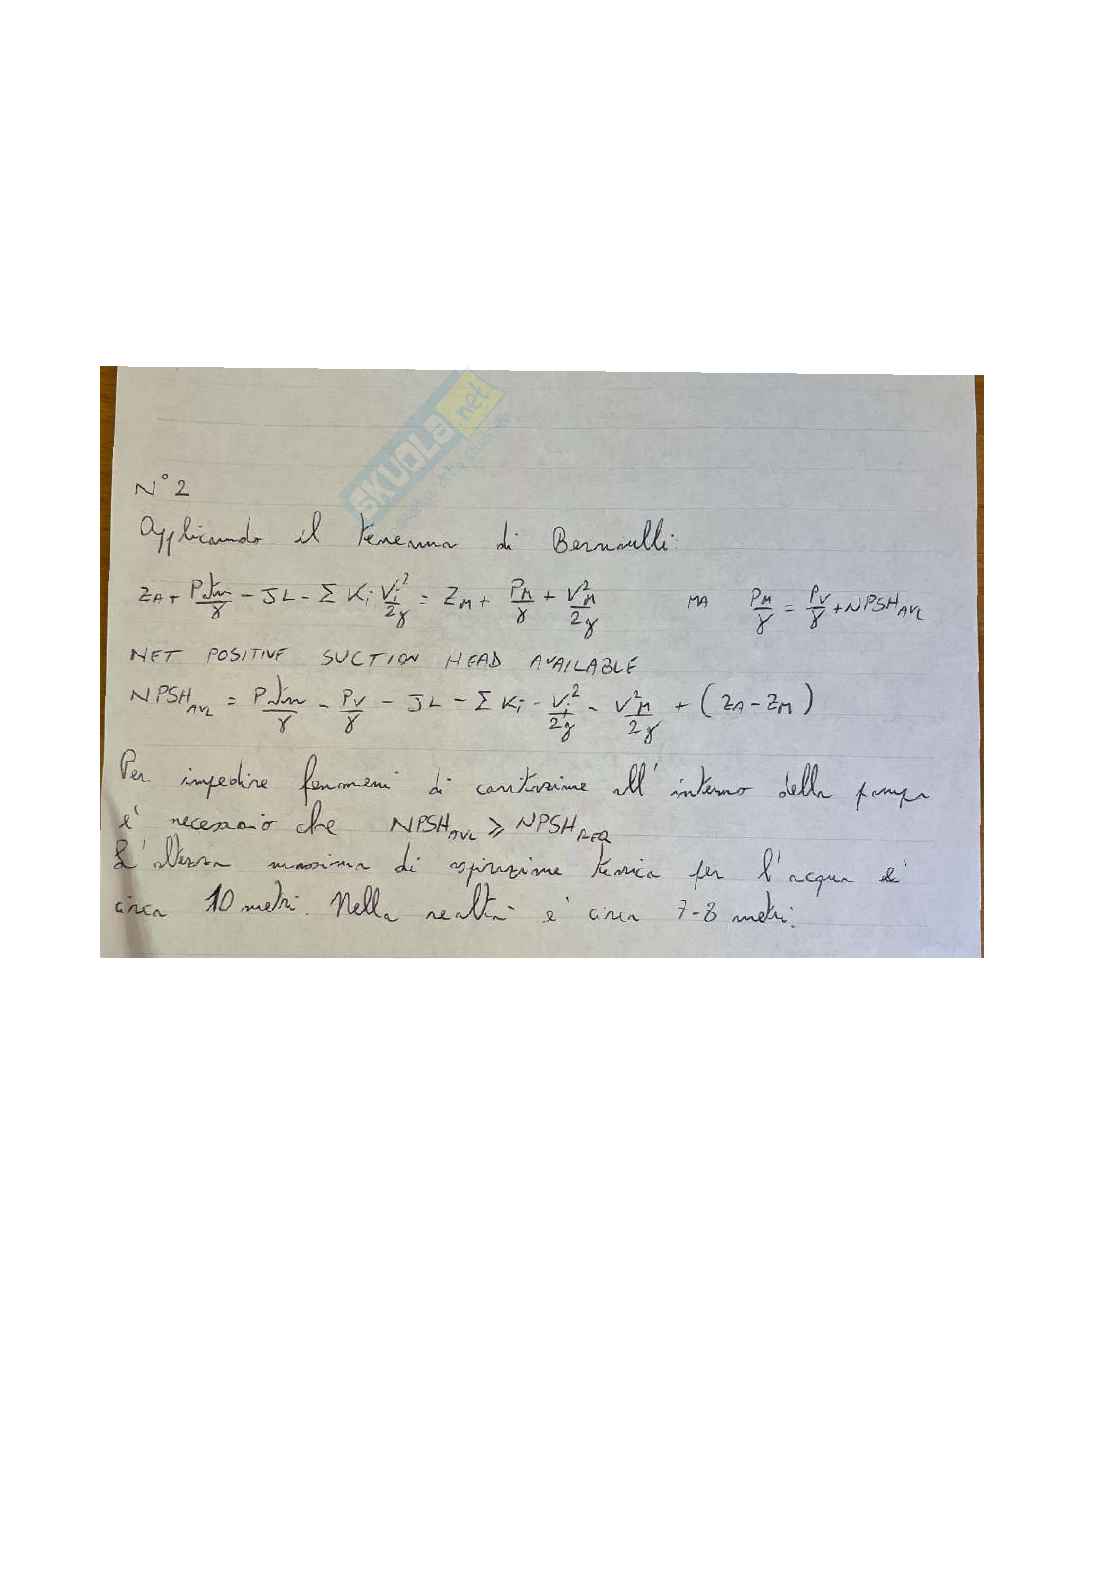 SKUOLA.net
N°2
Applicando il teorema di Bernoulli:
ZA + Patm/γ - JL - Σ Ki Vi²/2g = ZM + PM/γ + VM²/2g MA PM/γ = Pv/γ + NPSH AVL
NET POSITIVE SUCTION HEAD AVAILABLE
NPSH AVL = Patm/γ - Pv/γ - JL - Σ Ki - Vi²/2g - V²M/2g + (ZA - ZM)
Per impedire fenomeni di cavitazione all'interno della pompa
e' necessario che NPSH AVL ⩾ NPSH REQ
L'altezza massima di aspirazione teorica per l'acqua e'
circa 10 metri. Nella realtà e' circa 7-8 metri.